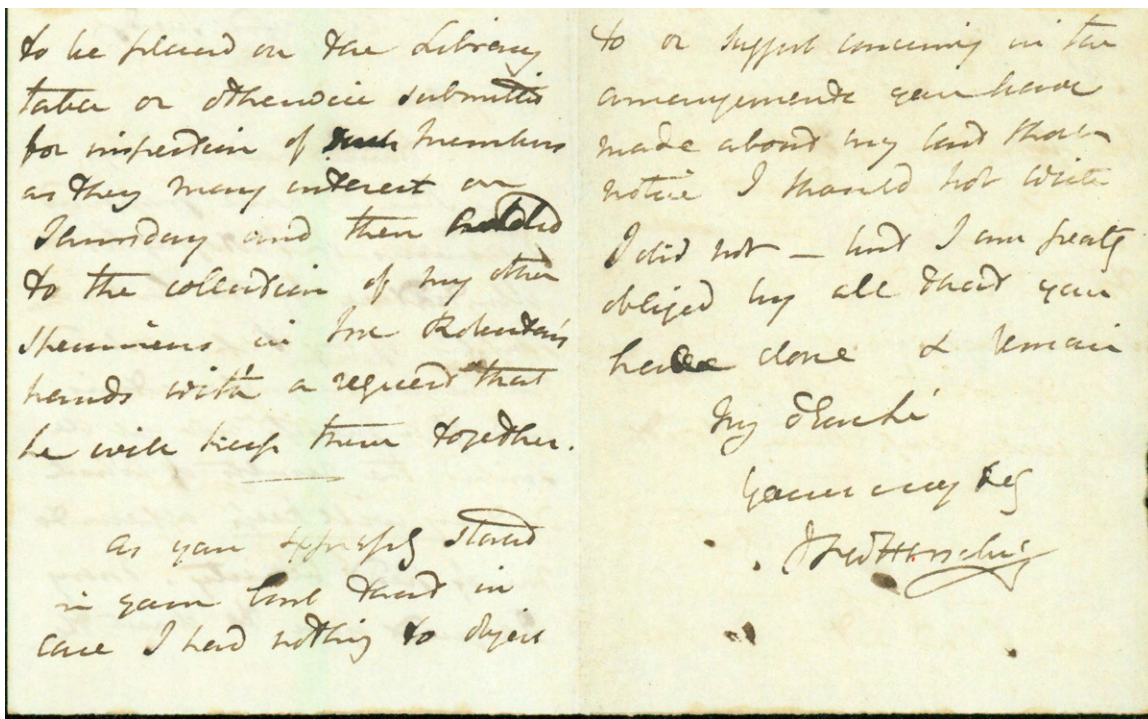 to be placed on the Library
table or otherwise submitted
for inspection of such Members
as they may interest on
Thursday and then added
to the collection of my other
specimens in Mr
hands with a request that
he will keep them together.
As you expressly stated
in your last that in
case I had nothing to object
to or suggest concerning in the
arrangements you have
made about my last short
notice I should not write
I did not — but I am greatly
obliged by all that you
have done & remain
My
Yours very
JFW Herschel